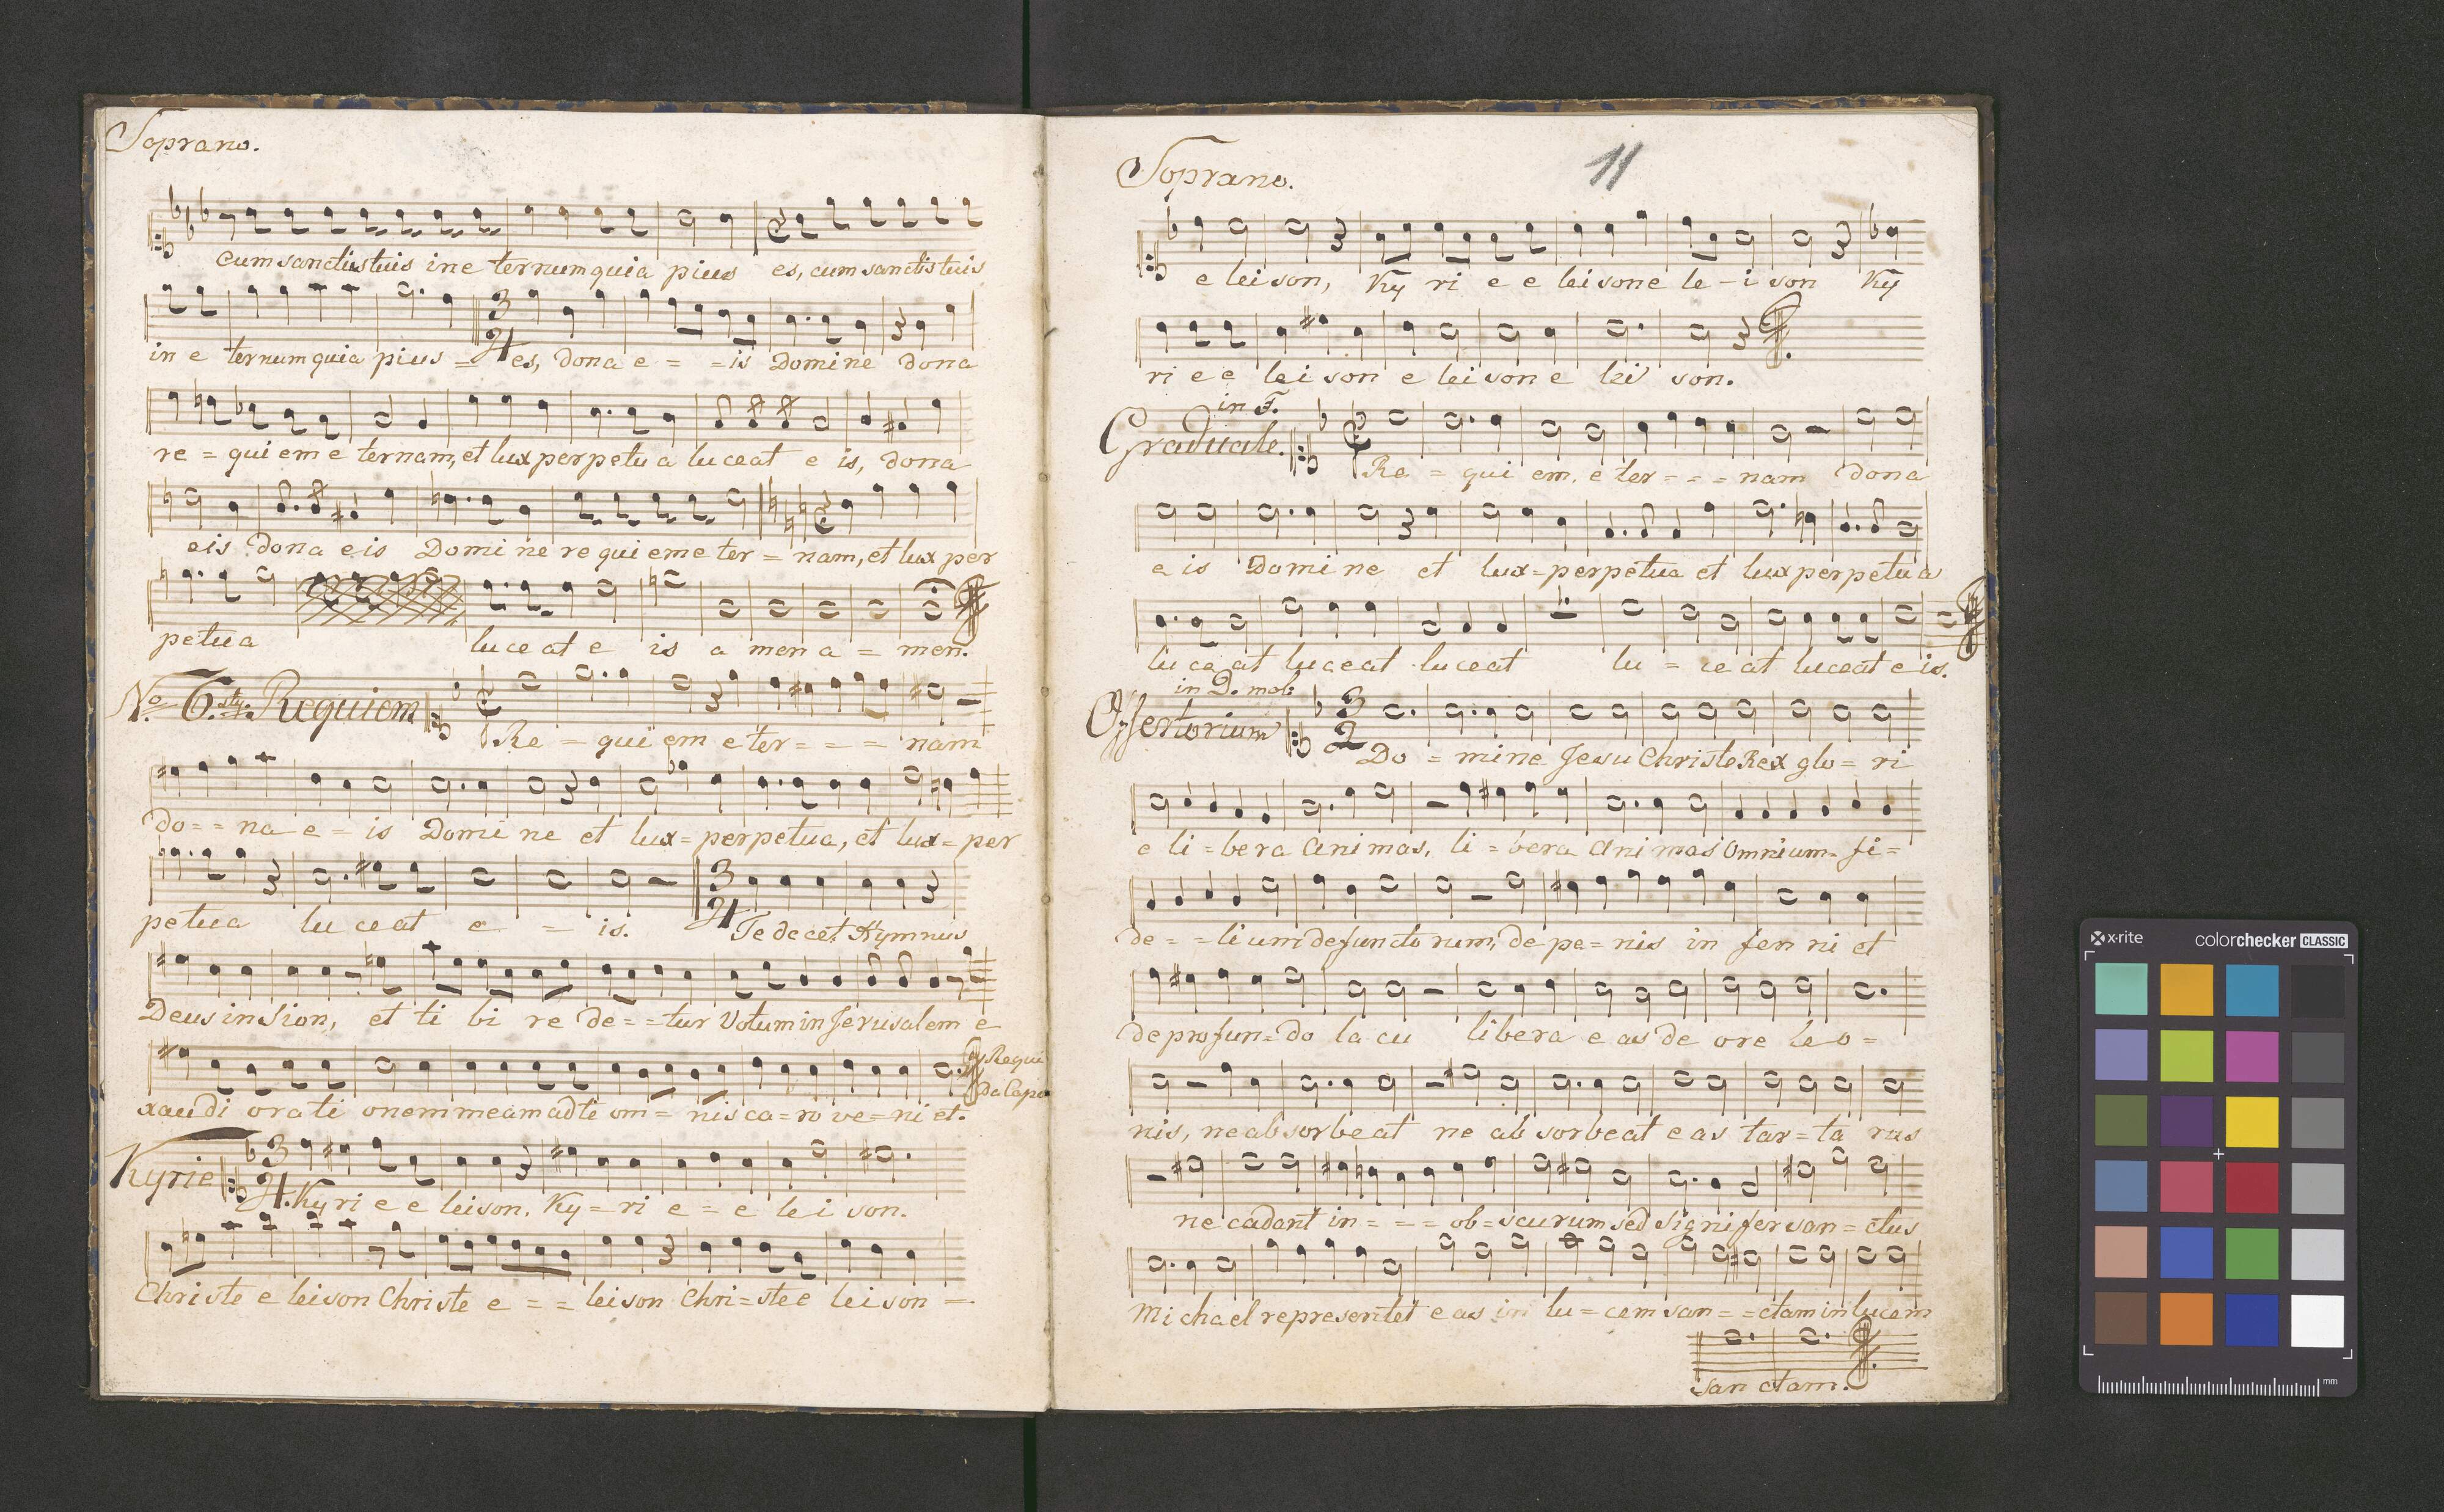 Soprano.
cum sanctis tuis in e ternum quia pius es, cum sanctis tuis
in e ternum quia pius = es, dona e = = is Domine dona
3
4
re = qui em e ternam, et lux perpetu a luceat e is, dona
eis dona eis Domine requi em e ter = nam, et lux per
petua luceat e is a men a = men.
No. 6.sty. Requiem
Re = qui em e ter = = = nam
do = = na e = is Domine et lux = perpetua, et lux = per
petua lu ceat e = is. Te decet Hymnus
3
4
Deus in Sion, et ti bi re de = = tur Votum in Jerusalem e
xaudi orati onem meam ad te om = nis ca = ro ve = ni et.
Requi
Da Capo
Kyrie
3
4.
Ky ri e e leison, Ky = ri e = e lei son.
Christe e leison Christe e = = leison Chri = ste e leison =
Soprano.
11
e leison, Ky ri e e leison e le - i son Ky
ri e e lei son e leison e lei son.
in F.
Graduale.
Re = qui em, e ter = = = nam dona
e is Domine et lux = perpetua et lux perpetua
lu ce at luceat luceat lu = ce at luceat e is.
in D. mol:
Offertorium
3
2
Do = mine Jesu Christe Rex glo = ri
e li = bera Animas, li = bera Animas Omnium = fi =
de = = lium defuncto rum, de pe = nis in fer ni et
de profun = do la cu libera e as de ore leo =
nis, ne absorbeat ne ab sorbeat e as tar = ta rus
ne cadant in = = = ob = scurum sed Signifer san = ctus
Michael representet e as in lu = cem san = = ctam in lucem
san ctam.
x-rite
colorchecker CLASSIC
mm